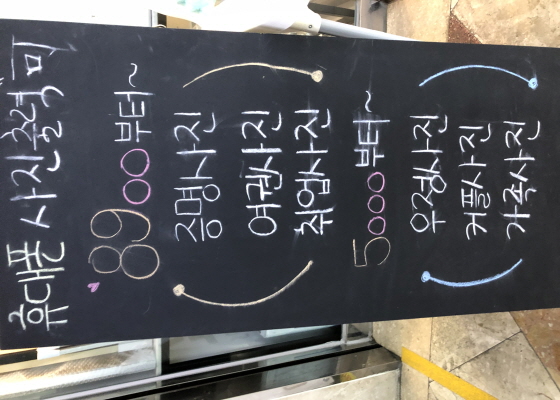 휴대폰 사진출력 可
8900부터~
증명사진
여권사진
취업사진
5000부터~
우정사진
커플사진
가족사진